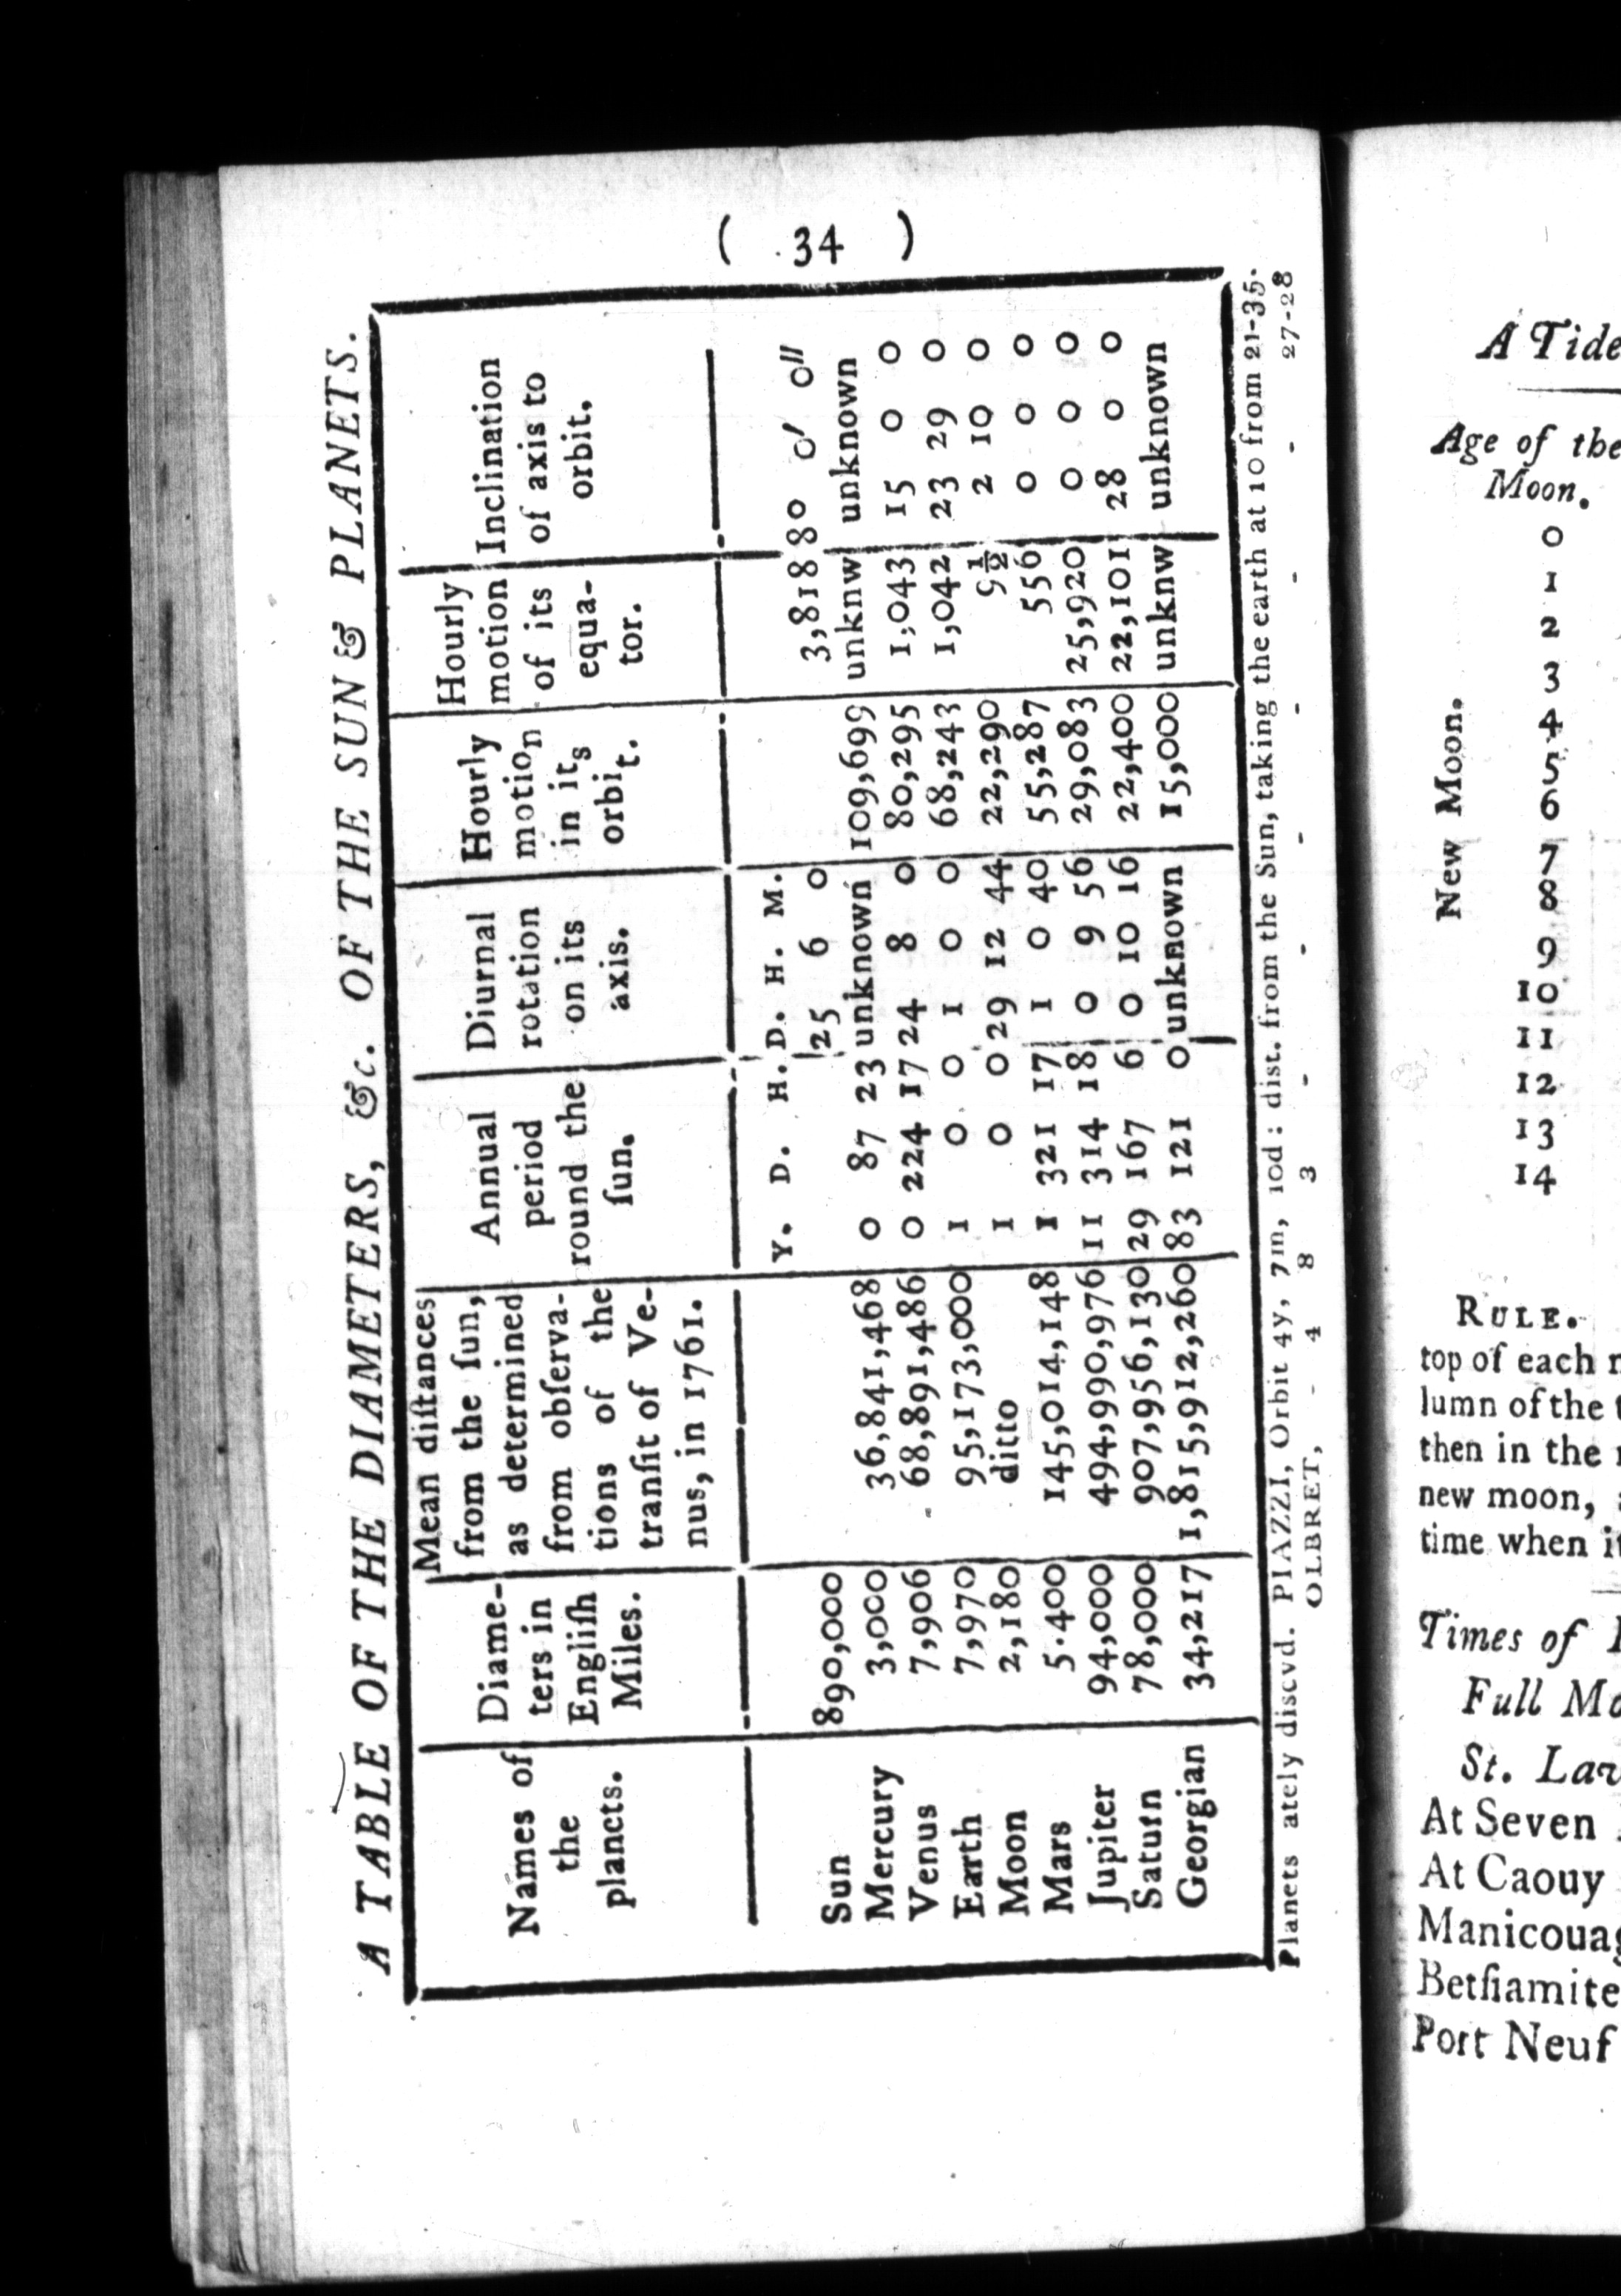 ( 34 )
A TABLE OF THE DIAMETERS, &c. OF THE SUN & PLANETS.
Names of the plancts. | Diameters in Engliſh Miles. | Mean diſtances from the ſun, as determined from obſervations of the tranſit of Venus, in 1761. | Annual period round the ſun. | Diurnal rotation on its axis. | Hourly motion in its orbit. | Hourly motion of its equator. | Inclination of axis to orbit.
Y. D. H. | D. H. M.
Sun 890,000 | 25 6 0 | 3,818 | 80 0′ 0″
Mercury 3,000 | 36,841,468 | 0 87 23 | unknown | 109,699 | unknw | unknown
Venus 7,906 | 68,891,486 | 0 224 17 | 24 8 0 | 80,295 | 1,043 | 15 0 0
Earth 7,970 | 95,173,000 | 1 0 0 | 1 0 0 | 68,243 | 1,042 | 23 29 0
Moon 2,180 | ditto | 1 0 0 | 29 12 44 | 22,290 | 9½ | 2 10 0
Mars 5.400 | 145,014,148 | 1 321 17 | 1 0 40 | 55,287 | 556 | 0 0 0
Jupiter 94,000 | 494,990,976 | 11 314 18 | 0 9 56 | 29,083 | 25,920 | 0 0 0
Saturn 78,000 | 907,956,130 | 29 167 6 | 0 10 16 | 22,400 | 22,101 | 28 0 0
Georgian 34,217 | 1,815,912,260 | 83 121 0 | unknown | 15,000 | unknw | unknown
Planets ately discvd. PIAZZI, Orbit 4y, 7m, 10d : dist. from the Sun, taking the earth at 10 from 21-35.
OLBRET, - 4 8 3 - - - - - - 27-28
A Tide
Age of the
Moon.
New Moon.
0
1
2
3
4
5
6
7
8
9
10
11
12
13
14
RULE.
top of each
lumn of the
then in the
new moon,
time when
Times of
Full
St.
At Seven
At Caouy
Port Neuf